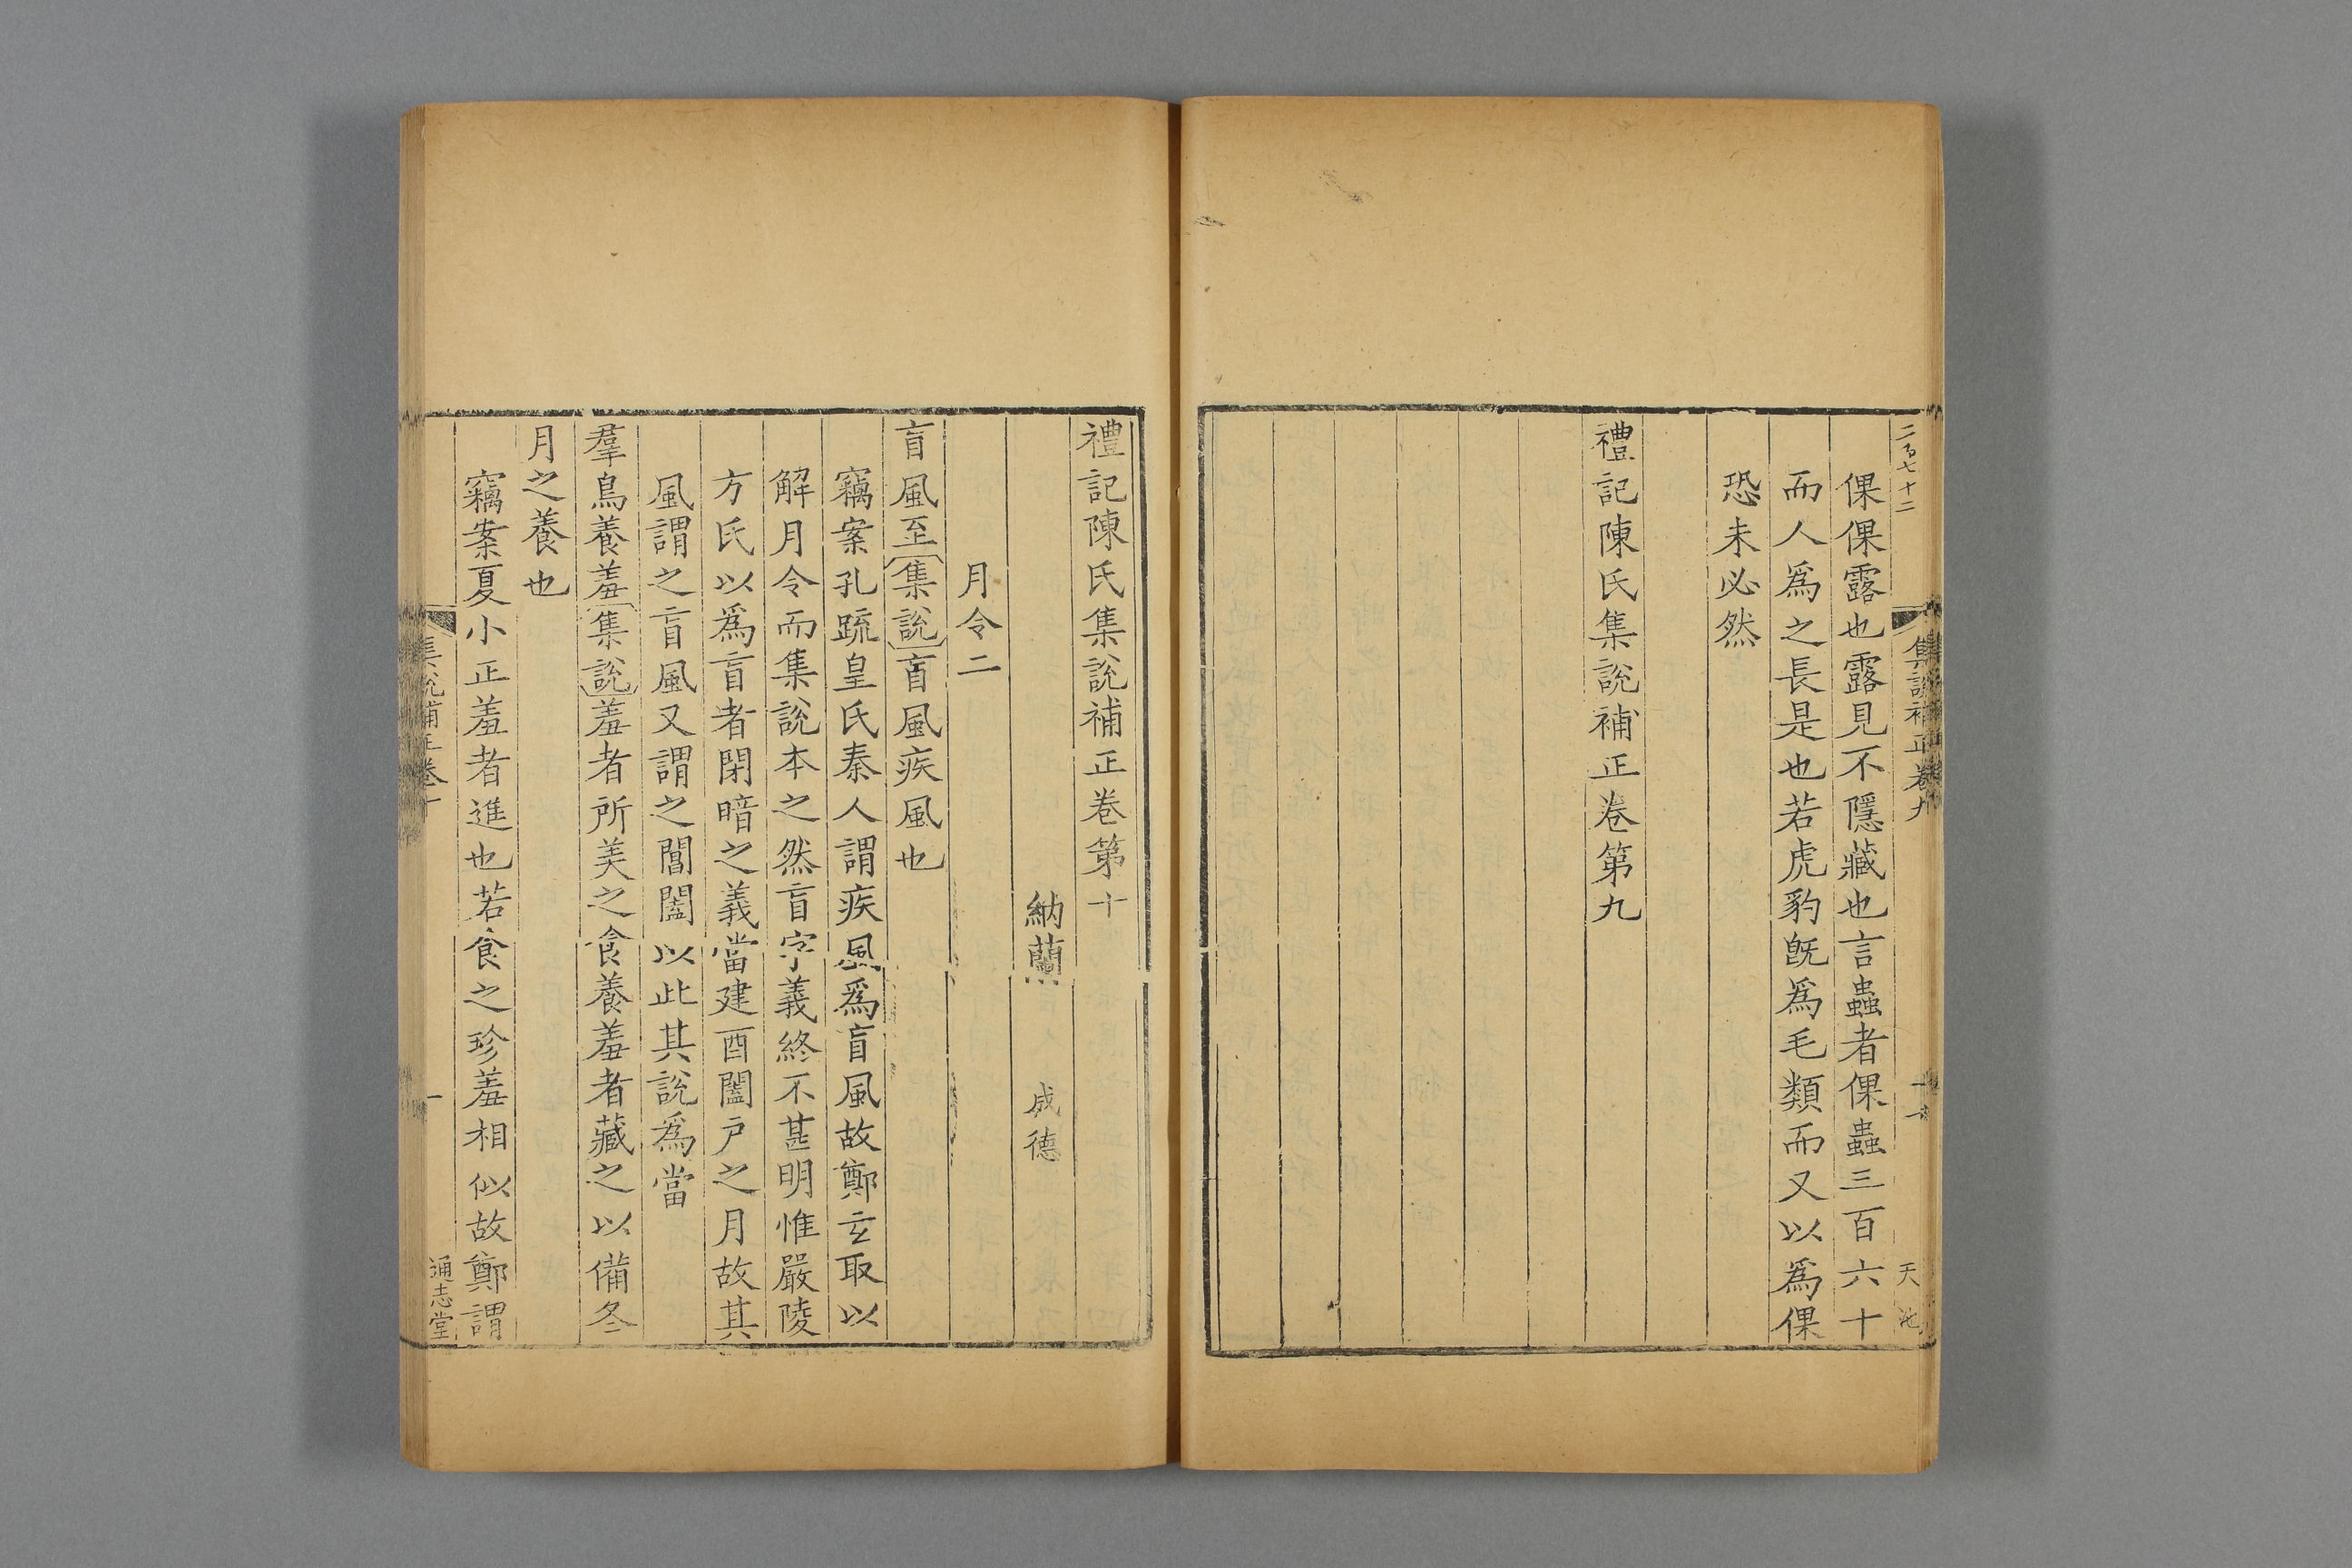 二百七十二
集說補正卷九
十一
天池
倮倮露也露見不隱藏也言蟲者倮蟲三百六十
而人爲之長是也若虎豹旣爲毛類而又以爲倮
恐未必然
禮記陳氏集說補正卷第九
禮記陳氏集說補正卷第十
納蘭 成德
月令二
盲風至集說盲風疾風也
竊案孔疏皇氏秦人謂疾風爲盲風故鄭玄取以
解月令而集說本之然盲字義終不甚明惟嚴陵
方氏以爲盲者閉暗之義當建酉闔戶之月故其
風謂之盲風又謂之閶闔以此其說爲當
羣鳥養羞集說羞者所美之食養羞者藏之以備冬
月之養也
竊案夏小正羞者進也若食之珍羞相似故鄭謂
集說補正卷十
一
通志堂